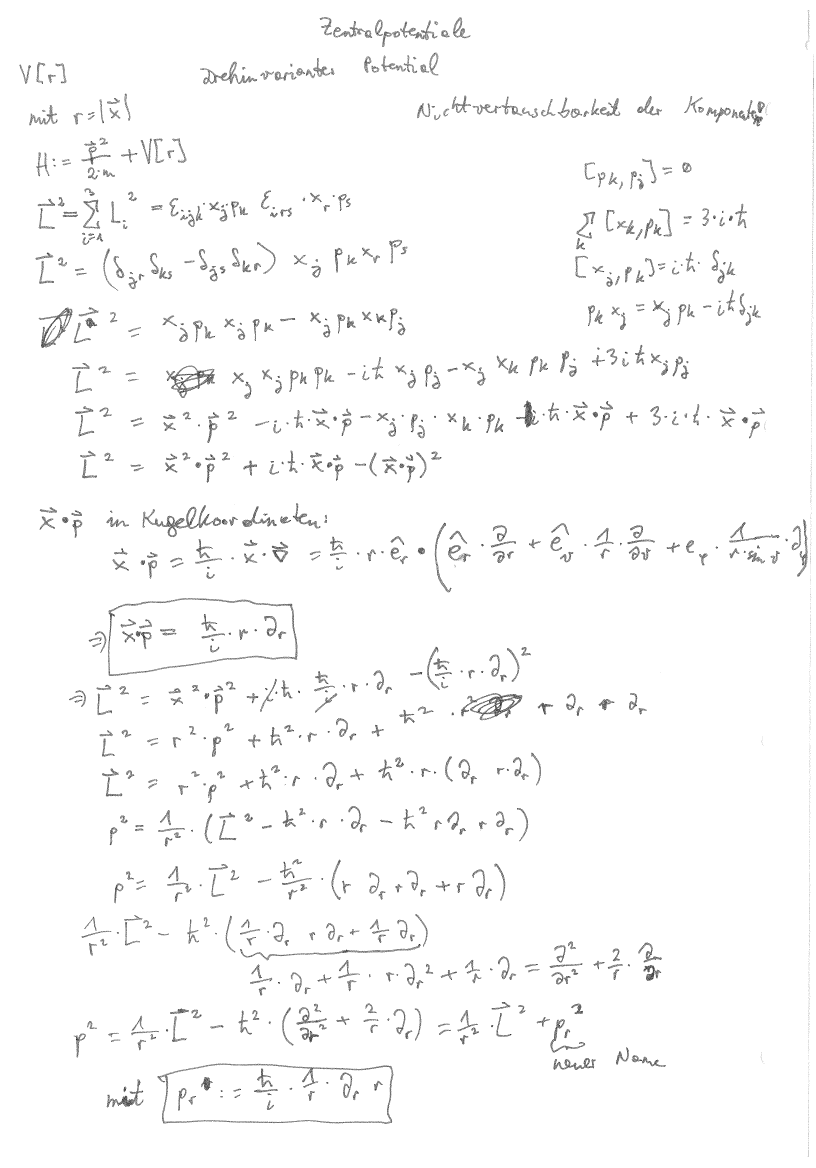 Zentralpotentiale
V[r] Drehinvariantes Potential
mit r=|x⃗| Nichtvertauschbarkeit der Komponenten
H := p⃗²/(2·m) + V[r]
[p_k, p_j] = 0
L⃗² = Σ_{i=1}^{3} L_i² = ε_{ijk}·x_j p_k ε_{irs}·x_r·p_s
Σ_k [x_k, p_k] = 3·i·ħ
L⃗² = (δ_{jr} δ_{ks} − δ_{js} δ_{kr}) x_j p_k x_r p_s
[x_j, p_k] = i·ħ· δ_{jk}
p_k x_j = x_j p_k − iħ δ_{jk}
L⃗² = x_j p_k x_j p_k − x_j p_k x_k p_j
L⃗² = x_j x_j p_k p_k − iħ x_j p_j − x_j x_k p_k p_j + 3iħ x_j p_j
L⃗² = x⃗²·p⃗² − i·ħ·x⃗•p⃗ − x_j·p_j·x_k·p_k − i·ħ·x⃗•p⃗ + 3·i·ħ·x⃗•p⃗
L⃗² = x⃗²•p⃗² + i·ħ·x⃗•p⃗ − (x⃗•p⃗)²
x⃗•p⃗ in Kugelkoordinaten:
x⃗•p⃗ = ħ/i · x⃗•∇⃗ = ħ/i · r·ê_r • (ê_r · ∂/∂r + ê_ϑ · 1/r · ∂/∂ϑ + e_φ · 1/(r·sin ϑ) · ∂_φ)
⇒ x⃗•p⃗ = ħ/i · r · ∂_r
⇒ L⃗² = x⃗²•p⃗² + i·ħ· ħ/i · r·∂_r − (ħ/i · r·∂_r)²
L⃗² = r²·p² + ħ²·r·∂_r + ħ² · r ∂_r r ∂_r
L⃗² = r²·p² + ħ²·r·∂_r + ħ²·r·(∂_r r·∂_r)
p² = 1/r² · (L⃗² − ħ²·r·∂_r − ħ² r∂_r r∂_r)
p² = 1/r² · L⃗² − ħ²/r² · (r ∂_r r∂_r + r ∂_r)
1/r² · L⃗² − ħ² · (1/r·∂_r r∂_r + 1/r ∂_r)
1/r · ∂_r + 1/r · r·∂_r² + 1/r · ∂_r = ∂²/∂r² + 2/r · ∂/∂r
p² = 1/r² · L⃗² − ħ² · (∂²/∂r² + 2/r · ∂_r) = 1/r² · L⃗² + p_r²
neuer Name
mit p_r := ħ/i · 1/r · ∂_r r